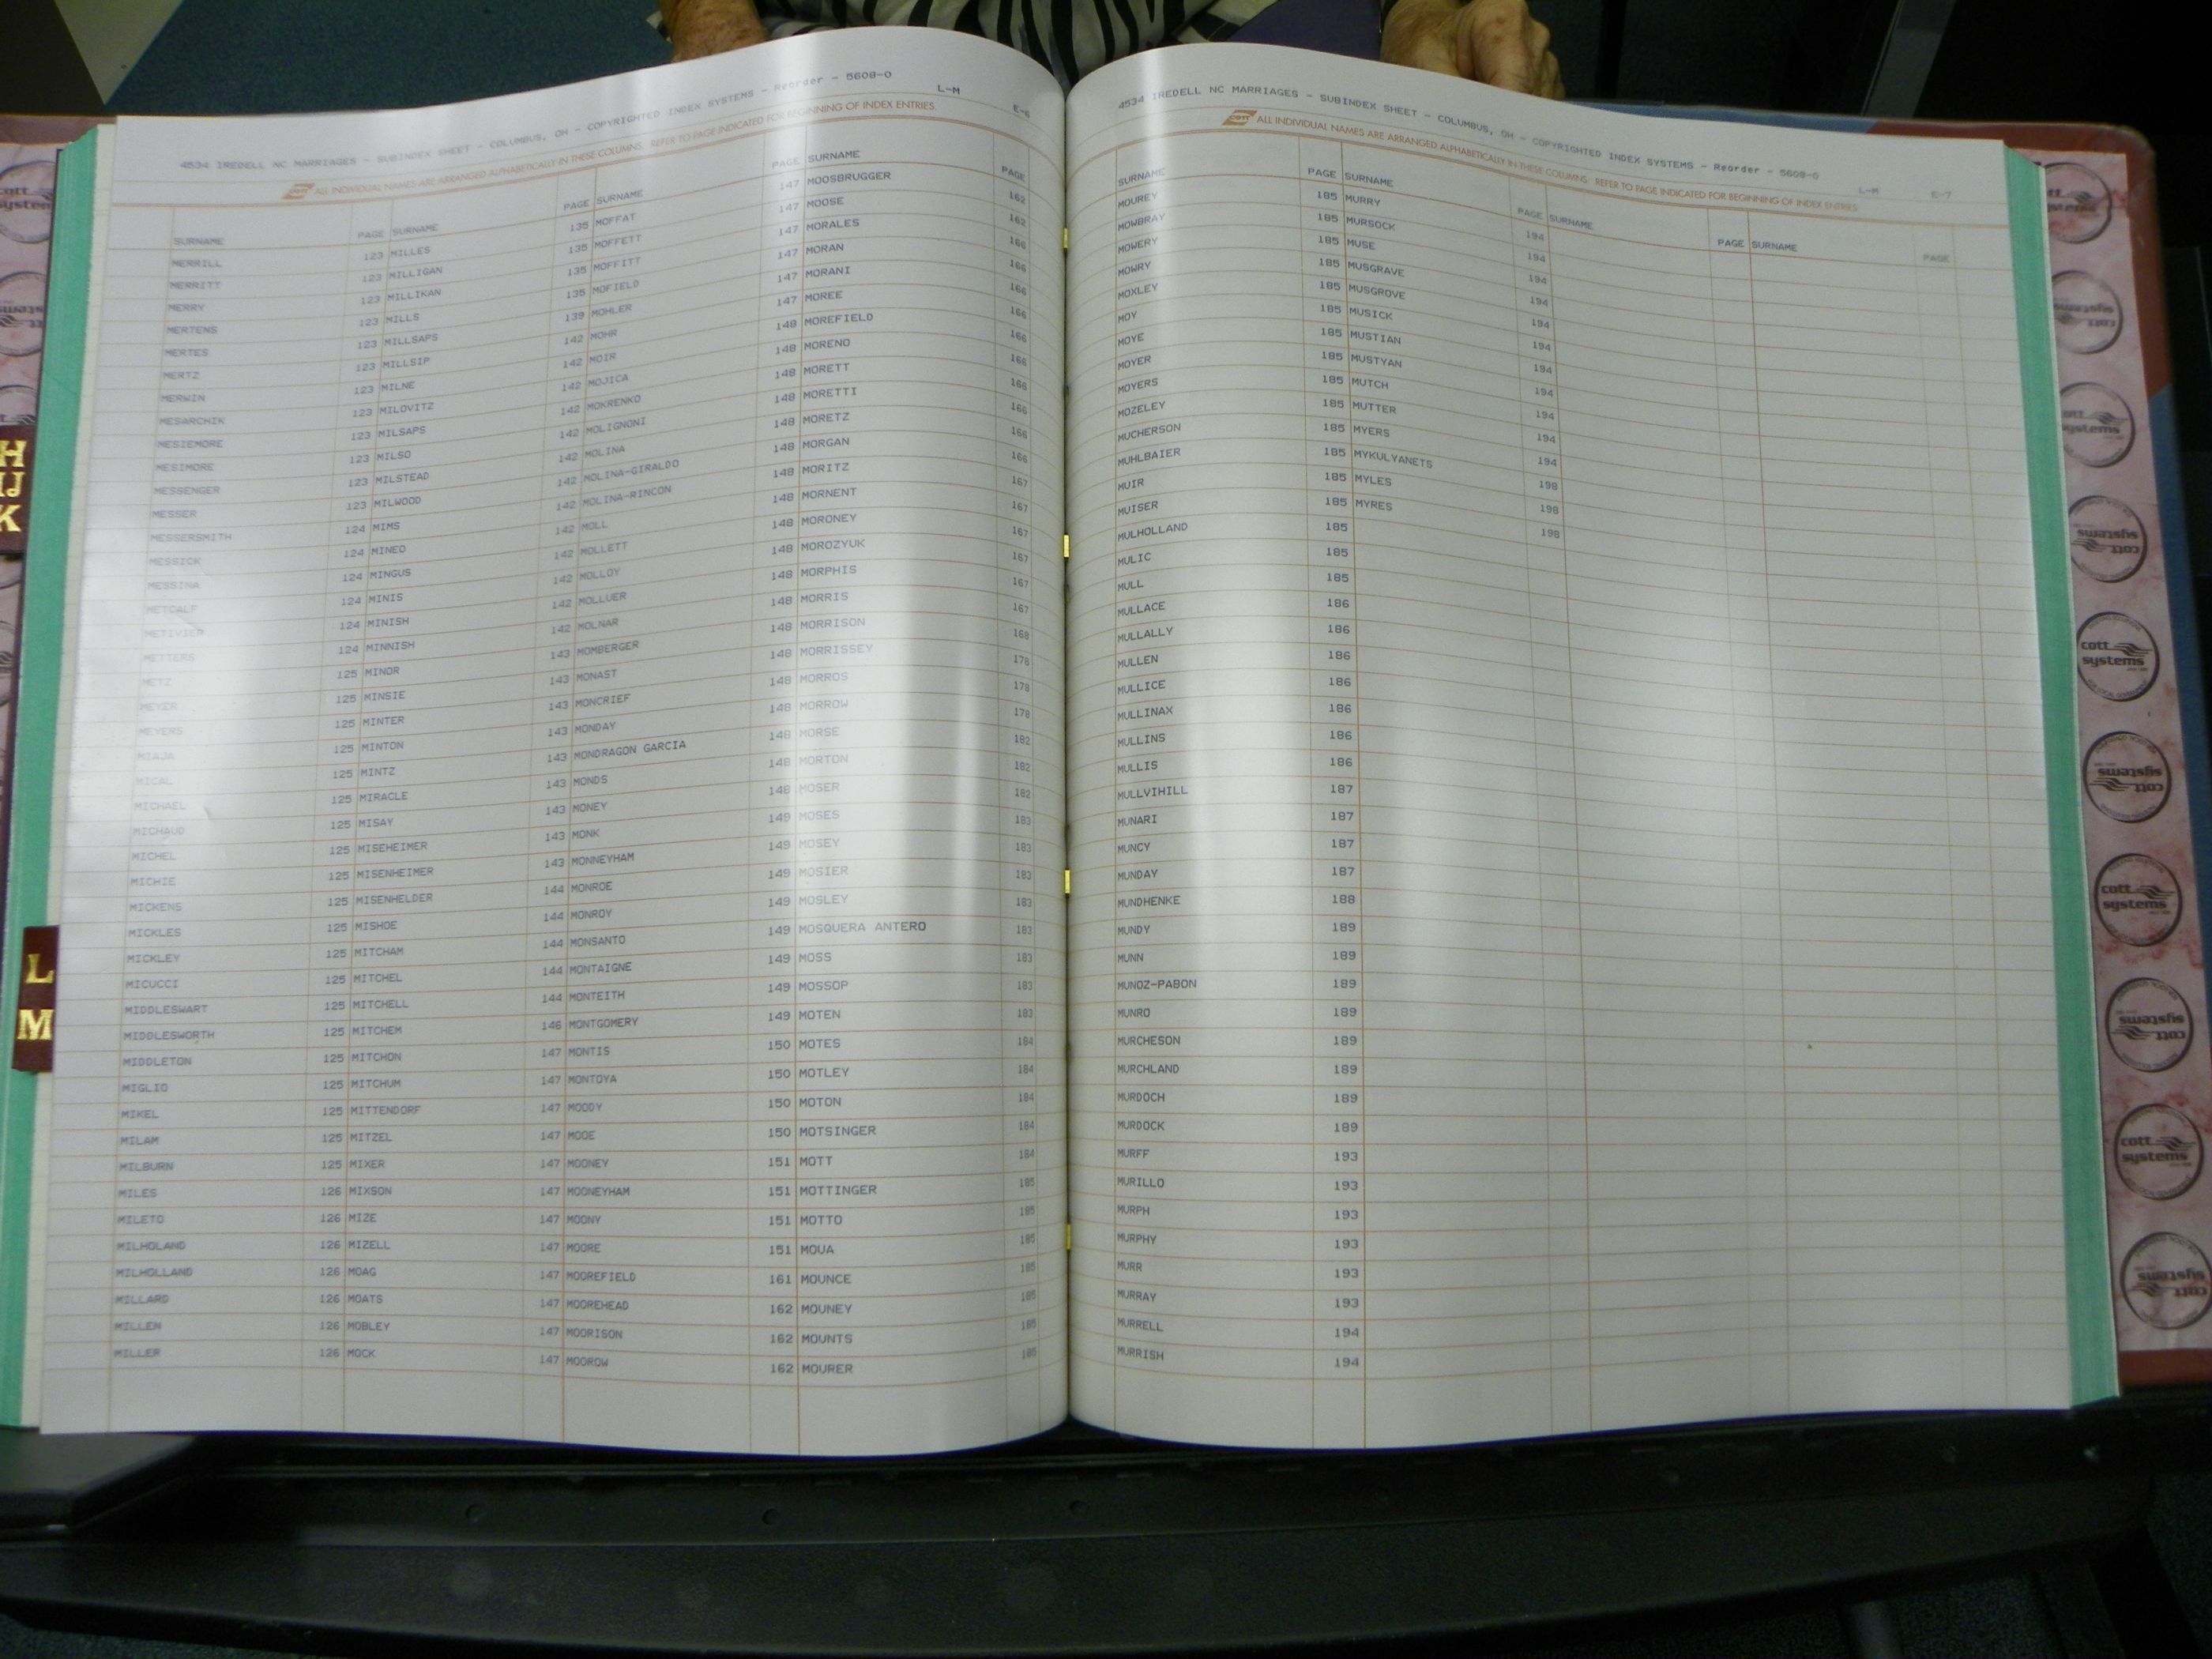 4534 IREDELL NC MARRIAGES - SUBINDEX SHEET - COLUMBUS, OH - COPYRIGHTED INDEX SYSTEMS - Reorder - 5608-0
L-M E-6
cott ALL INDIVIDUAL NAMES ARE ARRANGED ALPHABETICALLY IN THESE COLUMNS. REFER TO PAGE INDICATED FOR BEGINNING OF INDEX ENTRIES.
SURNAME PAGE
MERRILL 123
MERRITT 123
MERRY 123
MERTENS 123
MERTES 123
MERTZ 123
MERWIN 123
MESARCHIK 123
MESIEMORE 123
MESIMORE 123
MESSENGER 123
MESSER 123
MESSERSMITH 124
MESSICK 124
MESSINA 124
METCALF 124
METIVIER 124
METTERS 124
METZ 125
MEYER 125
MEYERS 125
MIAJA 125
MICAL 125
MICHAEL 125
MICHAUD 125
MICHEL 125
MICHIE 125
MICKENS 125
MICKLES 125
MICKLEY 125
MICUCCI 125
MIDDLESWART 125
MIDDLESWORTH 125
MIDDLETON 125
MIGLIO 125
MIKEL 125
MILAM 125
MILBURN 125
MILES 126
MILETO 126
MILHOLAND 126
MILHOLLAND 126
MILLARD 126
MILLEN 126
MILLER 126
SURNAME PAGE
MILLES 135
MILLIGAN 135
MILLIKAN 135
MILLS 135
MILLSAPS 139
MILLSIP 142
MILNE 142
MILOVITZ 142
MILSAPS 142
MILSO 142
MILSTEAD 142
MILWOOD 142
MIMS 142
MINEO 142
MINGUS 142
MINIS 142
MINISH 142
MINNISH 142
MINOR 143
MINSIE 143
MINTER 143
MINTON 143
MINTZ 143
MIRACLE 143
MISAY 143
MISEHEIMER 143
MISENHEIMER 143
MISENHELDER 144
MISHOE 144
MITCHAM 144
MITCHEL 144
MITCHELL 144
MITCHEM 146
MITCHON 147
MITCHUM 147
MITTENDORF 147
MITZEL 147
MIXER 147
MIXSON 147
MIZE 147
MIZELL 147
MOAG 147
MOATS 147
MOBLEY 147
MOCK 147
SURNAME PAGE
MOFFAT 147
MOFFETT 147
MOFFITT 147
MOFIELD 147
MOHLER 147
MOHR 147
MOIR 148
MOJICA 148
MOKRENKO 148
MOLIGNONI 148
MOLINA 148
MOLINA-GIRALDO 148
MOLINA-RINCON 148
MOLL 148
MOLLETT 148
MOLLOY 148
MOLLUER 148
MOLNAR 148
MOMBERGER 148
MONAST 148
MONCRIEF 148
MONDAY 148
MONDRAGON GARCIA 148
MONDS 148
MONEY 148
MONK 149
MONNEYHAM 149
MONROE 149
MONROY 149
MONSANTO 149
MONTAIGNE 149
MONTEITH 149
MONTGOMERY 149
MONTIS 150
MONTOYA 150
MOODY 150
MOOE 150
MOONEY 151
MOONEYHAM 151
MOONY 151
MOORE 151
MOOREFIELD 161
MOOREHEAD 162
MOORISON 162
MOOROW 162
SURNAME PAGE
MOOSBRUGGER 162
MOOSE 162
MORALES 166
MORAN 166
MORANI 166
MOREE 166
MOREFIELD 166
MORENO 166
MORETT 166
MORETTI 166
MORETZ 166
MORGAN 166
MORITZ 167
MORNENT 167
MORONEY 167
MOROZYUK 167
MORPHIS 167
MORRIS 167
MORRISON 168
MORRISSEY 178
MORROS 178
MORROW 178
MORSE 182
MORTON 182
MOSER 182
MOSES 183
MOSEY 183
MOSIER 183
MOSLEY 183
MOSQUERA ANTERO 183
MOSS 183
MOSSOP 183
MOTEN 183
MOTES 184
MOTLEY 184
MOTON 184
MOTSINGER 184
MOTT 184
MOTTINGER 185
MOTTO 185
MOUA 185
MOUNCE 185
MOUNEY 185
MOUNTS 185
MOURER 185
4534 IREDELL NC MARRIAGES - SUBINDEX SHEET - COLUMBUS, OH - COPYRIGHTED INDEX SYSTEMS - Reorder - 5608-0
L-M E-7
cott ALL INDIVIDUAL NAMES ARE ARRANGED ALPHABETICALLY IN THESE COLUMNS. REFER TO PAGE INDICATED FOR BEGINNING OF INDEX ENTRIES.
SURNAME PAGE
MOUREY 185
MOWBRAY 185
MOWERY 185
MOWRY 185
MOXLEY 185
MOY 185
MOYE 185
MOYER 185
MOYERS 185
MOZELEY 185
MUCHERSON 185
MUHLBAIER 185
MUIR 185
MUISER 185
MULHOLLAND 185
MULIC 185
MULL 185
MULLACE 186
MULLALLY 186
MULLEN 186
MULLICE 186
MULLINAX 186
MULLINS 186
MULLIS 186
MULLVIHILL 187
MUNARI 187
MUNCY 187
MUNDAY 187
MUNDHENKE 188
MUNDY 189
MUNN 189
MUNOZ-PABON 189
MUNRO 189
MURCHESON 189
MURCHLAND 189
MURDOCH 189
MURDOCK 189
MURFF 193
MURILLO 193
MURPH 193
MURPHY 193
MURR 193
MURRAY 193
MURRELL 194
MURRISH 194
SURNAME PAGE
MURRY 194
MURSOCK 194
MUSE 194
MUSGRAVE 194
MUSGROVE 194
MUSICK 194
MUSTIAN 194
MUSTYAN 194
MUTCH 194
MUTTER 194
MYERS 194
MYKULYANETS 198
MYLES 198
MYRES 198
SURNAME PAGE
SURNAME PAGE
H
IJ
K
L
M
cott systems
cott systems
cott systems
cott systems
cott systems
cott systems
cott systems
cott systems
cott systems
cott systems